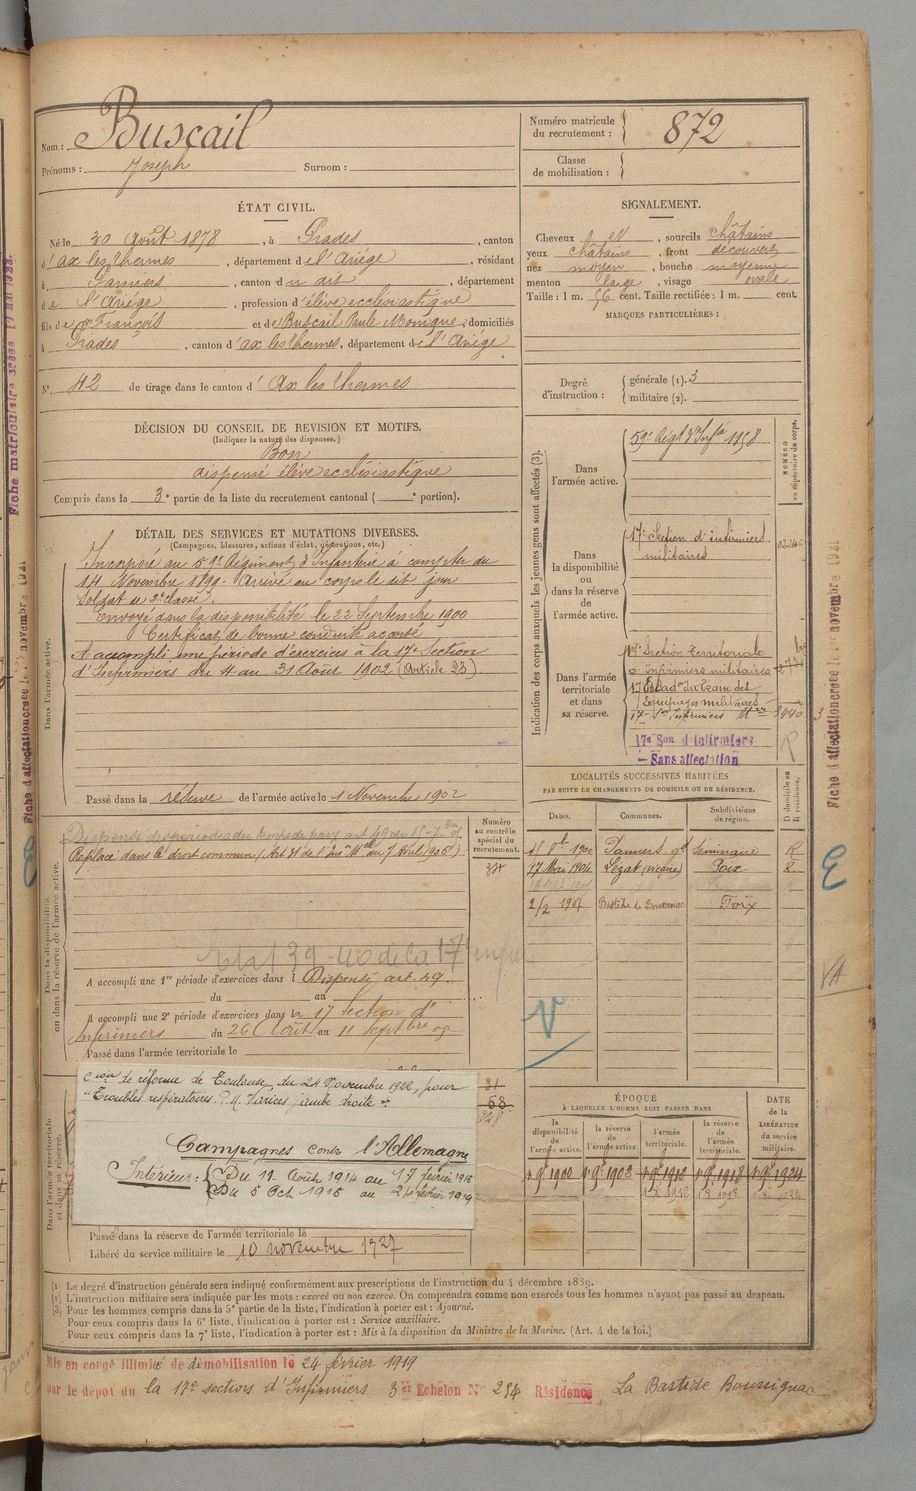 Nom : Buscail
Prénoms : Joseph Surnom :
ÉTAT CIVIL.
Né le 30 Août 1878, à Prades, canton
d'ax les thermes, département de l'Ariège, résidant
à Pamiers, canton du dit, département
de l'Ariège, profession d'élève ecclésiastique
fils de François et de Buscail Paule Monique, domiciliés
à Prades, canton d'ax les thermes, département de l'Ariège
N° 42 de tirage dans le canton d'Ax les thermes
DÉCISION DU CONSEIL DE REVISION ET MOTIFS.
(Indiquer la nature des dispenses.)
Bon
dispensé élève ecclésiastique
Compris dans la 3e partie de la liste du recrutement cantonal ( e portion).
DÉTAIL DES SERVICES ET MUTATIONS DIVERSES.
(Campagnes, blessures, actions d'éclat, décorations, etc.)
Dans l'armée active.
Incorporé au 59e Régiment d'Infanterie à compter du
14 Novembre 1899. Arrivé au corps le dit jour
Soldat de 2e classe.
Envoyé dans la disponibilité le 22 Septembre 1900
Certificat de bonne conduite accordé
A accompli une période d'exercices à la 17e Section
d'Infirmiers du 4 au 31 Août 1902 (Article 23)
Passé dans la réserve de l'armée active le 1 Novembre 1902
Dans la disponibilité
ou dans la réserve de l'armée active.
Numéro
au contrôle
spécial du
recrutement.
Replacé dans le droit commun (Art 31 de l' du 7 Avril 1906)
A accompli une 1re période d'exercices dans l Dispensé art 49.
du au
A accompli une 2e période d'exercices dans la 17 Section d'
Infirmiers du 26 Août au 11 Septbre 09
Passé dans l'armée territoriale le
Dans l'armée territoriale
et dans sa réserve.
Con de réforme de Toulouse, du 24 Novembre 1922, pour
"Troubles respiratoires. P.M. Varices jambe droite".
Campagnes contre l'Allemagne
Intérieur : Du 11 Août 1914 au 17 février 1915
Du 5 Oct. 1915 au 24 février 1919
31
68
248
Passé dans la réserve de l'armée territoriale le
Libéré du service militaire le 10 novembre 1927
Numéro matricule
du recrutement : 872
Classe
de mobilisation :
SIGNALEMENT.
Cheveux , sourcils châtains
yeux châtains, front découvert
nez moyen, bouche moyenne
menton large, visage ovale
Taille : 1 m. 56 cent. Taille rectifiée : 1 m. cent.
MARQUES PARTICULIÈRES :
Degré
d'instruction :
générale (1). 3
militaire (2).
Indication des corps auxquels les jeunes gens sont affectés (3).
NUMÉRO
au répertoire du corps.
Dans
l'armée active.
59e Régt d'Infie 1158
Dans
la disponibilité
ou
dans la réserve
de
l'armée active.
17e Section d'infirmiers
militaires
Dans l'armée
territoriale
et dans
sa réserve.
17e Section Territoriale
d'Infirmiers militaires
17 Escadon du Train des
Equipages militaires
17e Son Infirmiers Mres 3440
17e Son d'Infirmiers
— Sans affectation
R
LOCALITÉS SUCCESSIVES HABITÉES
PAR SUITE DE CHANGEMENTS DE DOMICILE OU DE RÉSIDENCE.
Dates. Communes. Subdivisions
de région.
D domicile ou
R résidence.
1900 Pamiers gd Séminaire R
17 Mai 1904 Lezat (vicaire) Foix R
2/2 1907 Bastide de Bousignac Foix
V
ÉPOQUE
À LAQUELLE L'HOMME DOIT PASSER DANS
la
disponibilité
de
l'armée active.
la réserve
de
l'armée active.
l'armée
territoriale.
la réserve
de
l'armée
territoriale.
DATE
de la
LIBÉRATION
du service
militaire.
1 9bre 1900 1 9bre 1902 1 9bre 1912 1 9bre 1918 1 9bre 1924
(1) Le degré d'instruction générale sera indiqué conformément aux prescriptions de l'instruction du 4 décembre 1889.
(2) L'instruction militaire sera indiquée par les mots : exercé ou non exercé. On comprendra comme non exercés tous les hommes n'ayant pas passé au drapeau.
(3) Pour les hommes compris dans la 5e partie de la liste, l'indication à porter est : Ajourné.
Pour ceux compris dans la 6e liste, l'indication à porter est : Service auxiliaire.
Pour ceux compris dans la 7e liste, l'indication à porter est : Mis à la disposition du Ministre de la Marine. (Art. 4 de la loi.)
Mis en congé illimité de démobilisation le 24 février 1919
par le dépot du la 17e section d'Infirmiers 3er Echelon N° 254 Résidence La Bastide Boussignac